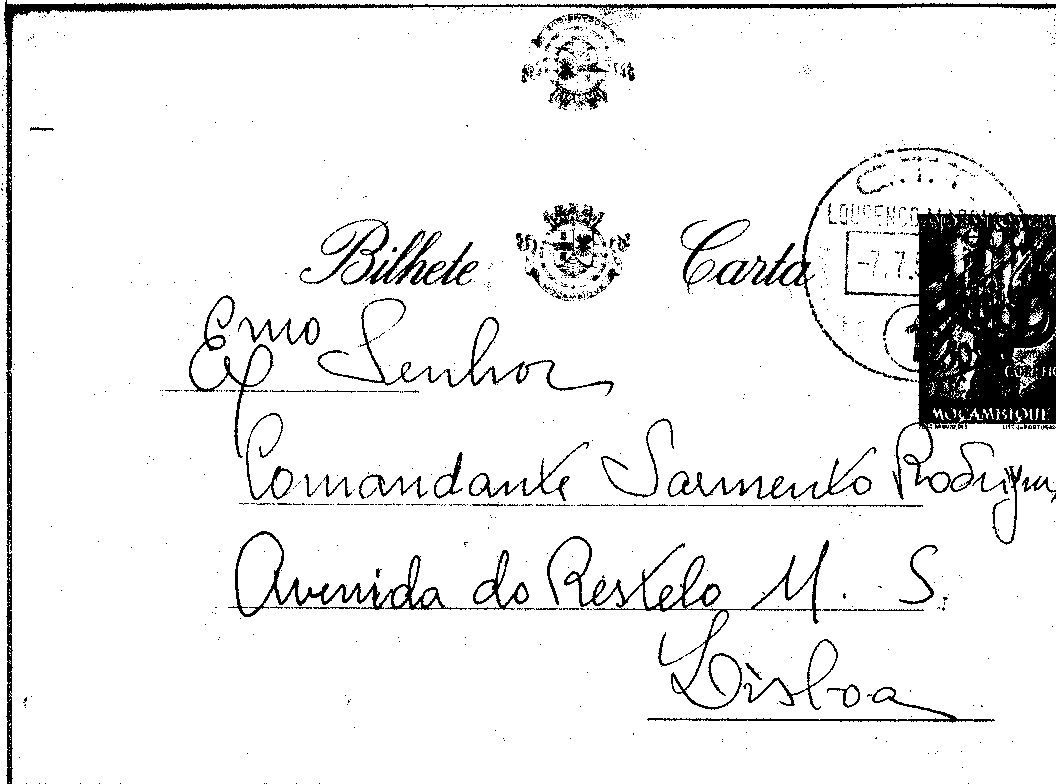 Bilhete Carta
C.T.T.
LOURENÇO MARQUES
-7.7.
CORREIO
MOÇAMBIQUE
Exmo Senhor
Comandante Sarmento Rodrigues
Avenida do Restelo M. S.
Lisboa